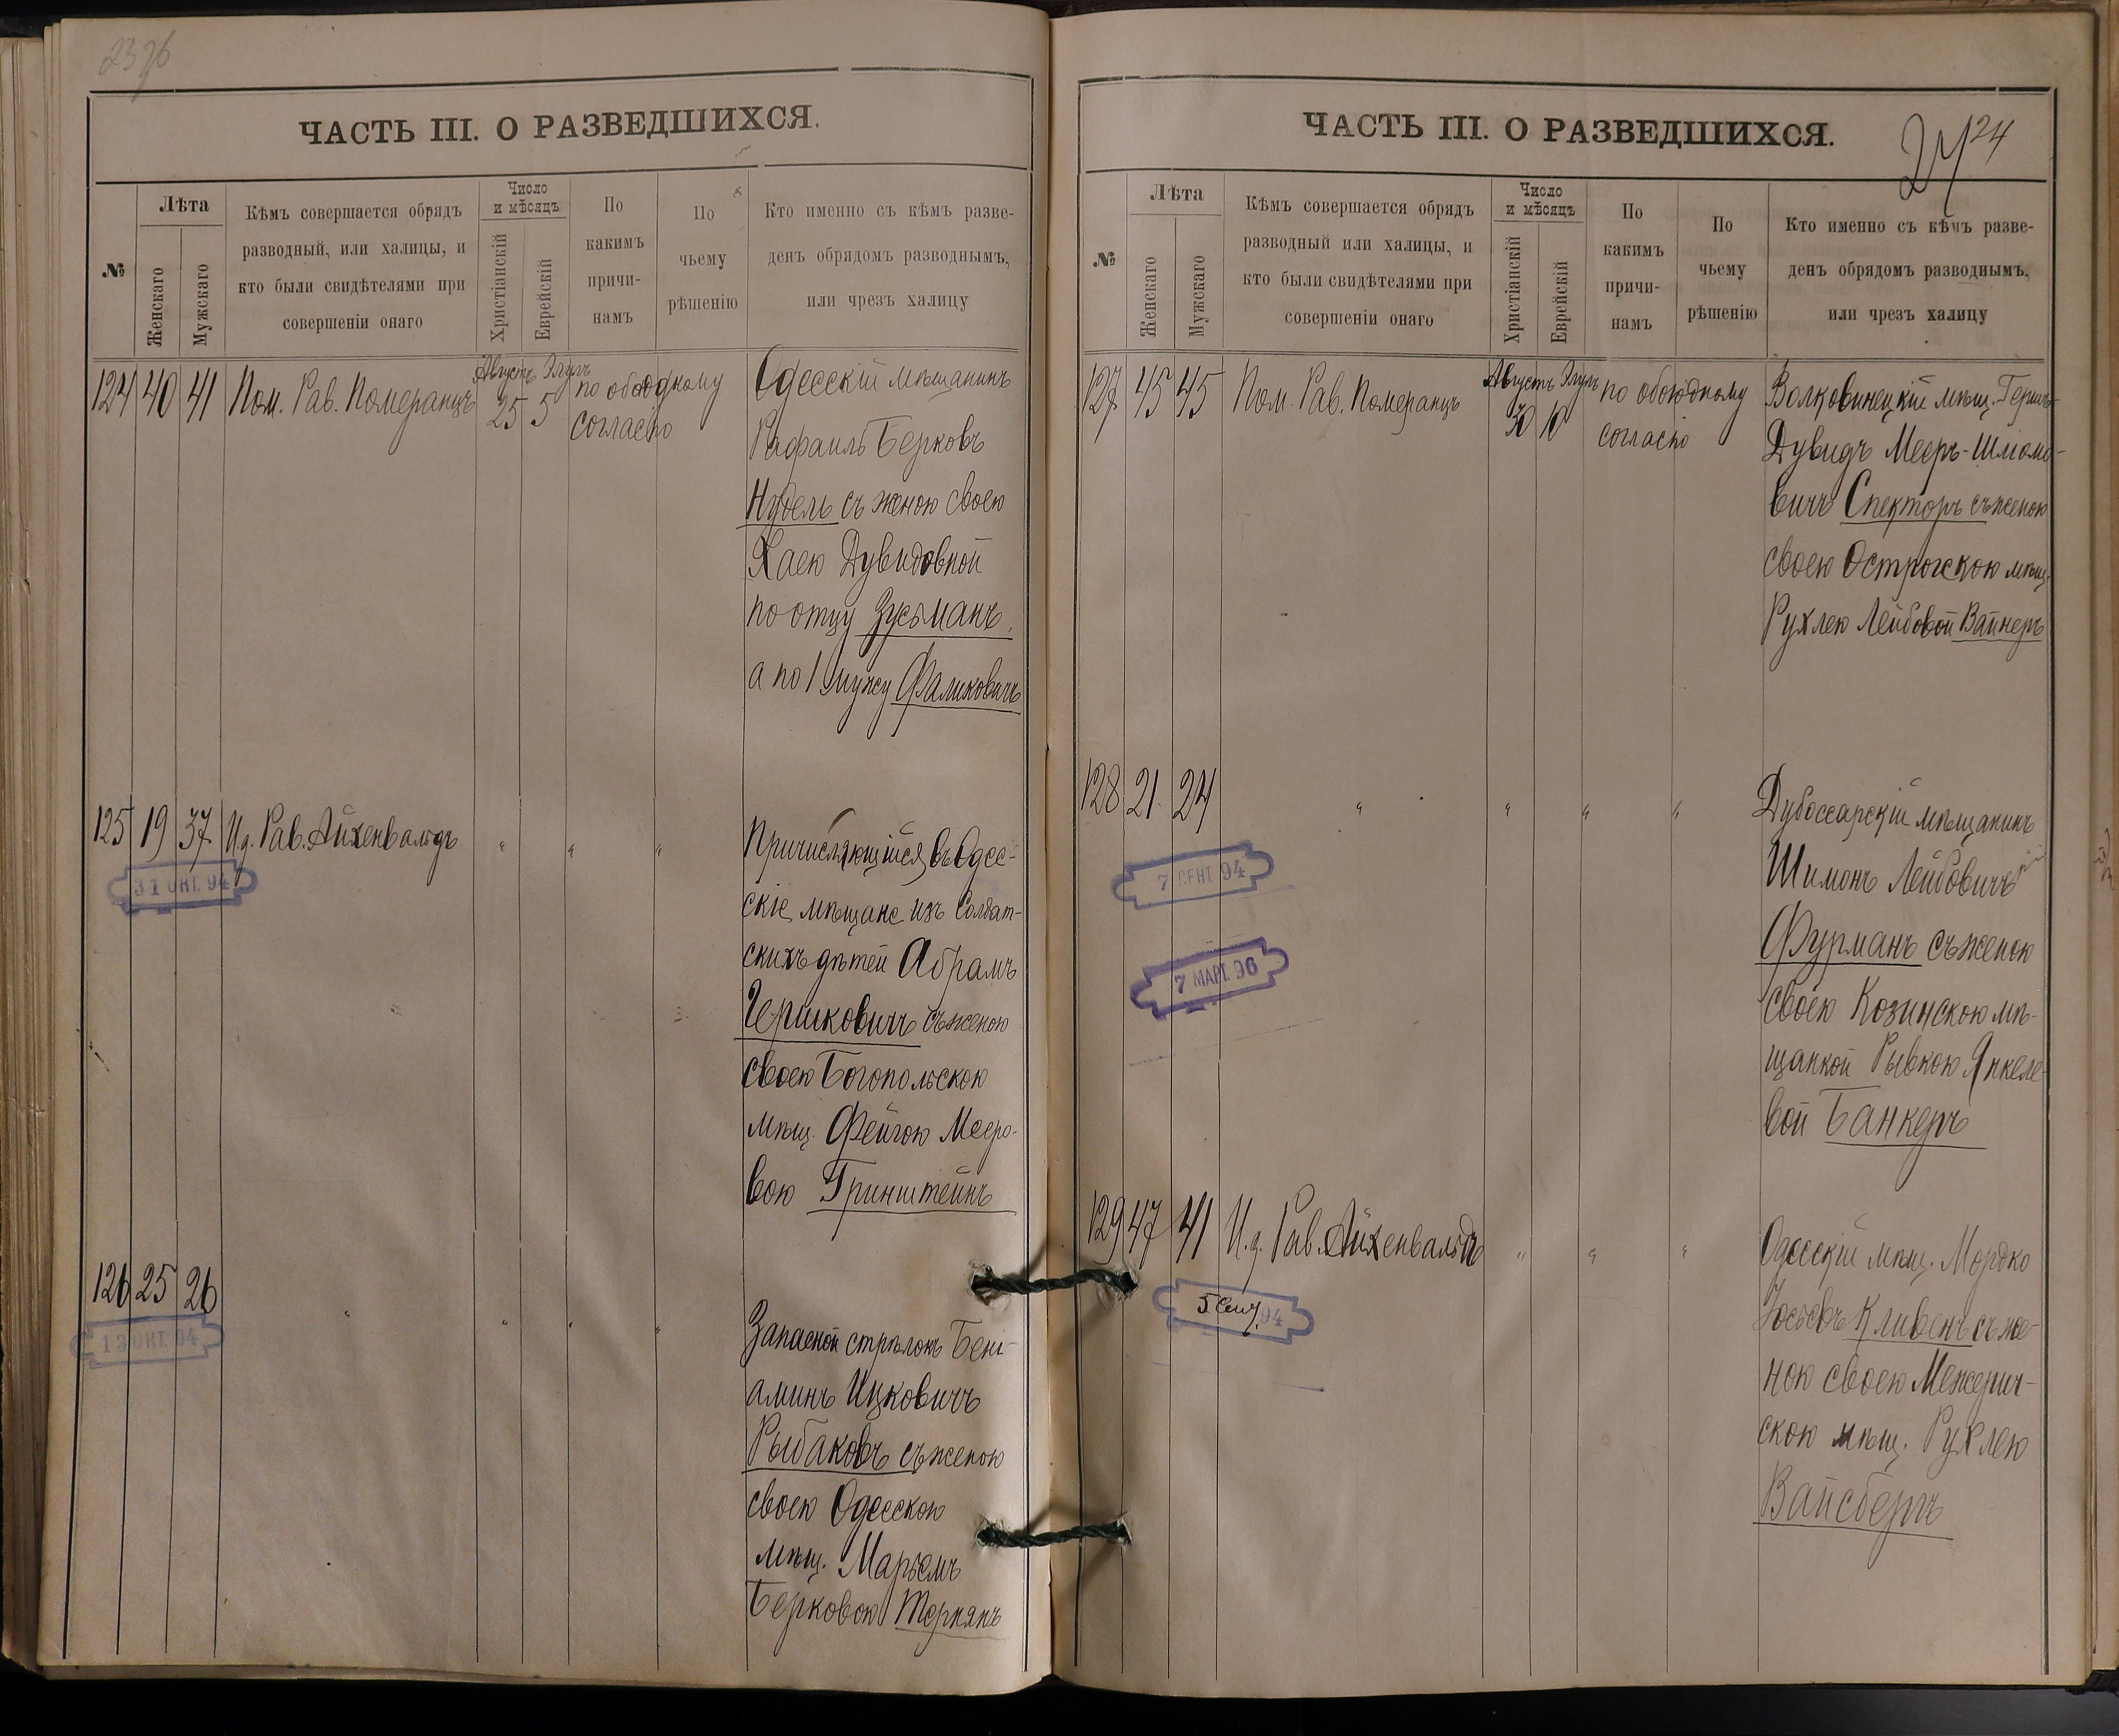 2396
ЧАСТЬ III. О РАЗВЕДШИХСЯ.
№
Лѣта
Женскаго
Мужскаго
Кѣмъ совершается обрядъ
разводный, или халицы, и
кто были свидѣтелями при
совершеніи онаго
Число
и мѣсяцъ
Христіанскій
Еврейскій
По
какимъ
причи-
намъ
По
чьему
рѣшенію
Кто именно съ кѣмъ разве-
денъ обрядомъ разводнымъ,
или чрезъ халицу
124 40 41 Пом. Рав. Померанцъ
Августъ Элулъ
25 5
по обоюдному
согласію
Одесскій мѣщанинъ
Рафаилъ Берковъ
Нудель съ женою своею
Хаею Дувидовной
по отцу Зусьманъ,
а по 1 мужу Фаликовичъ
125 19 37 И.д. Рав. Айхенвальдъ " " "
31 ОКТ. 94
Причисляющійся въ Одес-
скіе мѣщане изъ Солдат-
скихъ дѣтей Абрамъ
Гершковичъ съ женою
своею Богопольскою
мѣщ. Фейгою Мееро-
вою Гринштейнъ
126 25 26 " " " "
13 ОКТ. 94
Запасной стрѣлокъ Бені-
аминъ Ицковичъ
Рыбаковъ съ женою
своею Одесскою
мѣщ. Марьемъ
Берковою
ЧАСТЬ III. О РАЗВЕДШИХСЯ.
24
№
Лѣта
Женскаго
Мужскаго
Кѣмъ совершается обрядъ
разводный или халицы, и
кто были свидѣтелями при
совершеніи онаго
Число
и мѣсяцъ
Христіанскій
Еврейскій
По
какимъ
причи-
намъ
По
чьему
рѣшенію
Кто именно съ кѣмъ разве-
денъ обрядомъ разводнымъ,
или чрезъ халицу
127 45 45 Пом. Рав. Померанцъ
Августъ Элулъ
30 10
по обоюдному
согласію
Волковинецкій мѣщ. Гершъ-
Дувидъ Мееръ-Шліомо-
вичъ Спекторъ съ женою
своею Острожскою мѣщ.
Рухлею Лейбовой Вайнеръ
128 21 24 " " " "
7 СЕНТ. 94
7 МАРТ. 96
Дубоссарскій мѣщанинъ
Шимонъ Лейбовичъ
Фурманъ съ женою
своею Козинскою мѣ-
щанкой Рывкою Янкеле-
вой Банкеръ
129 47 41 И.д. Рав. Айхенвальдъ " " "
5 Сент. 94
Одесскій мѣщ. Мордко
Іосьевъ Кливенъ съ же-
ною своею Межерич-
скою мѣщ. Рухлею
Вайсбергъ